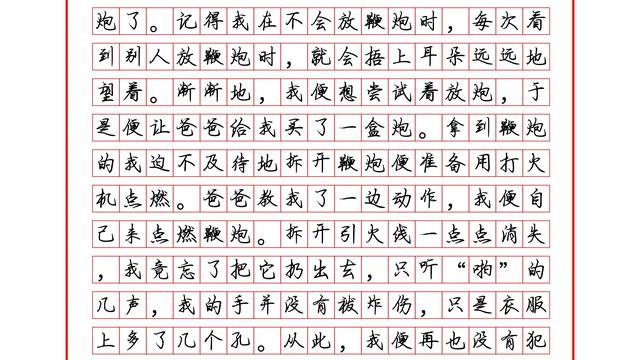 炮了。记得我在不会放鞭炮时，每次看
到别人放鞭炮时，就会捂上耳朵远远地
望着。渐渐地，我便想尝试着放炮，于
是便让爸爸给我买了一盒炮。拿到鞭炮
的我迫不及待地拆开鞭炮便准备用打火
机点燃。爸爸教我了一边动作，我便自
己来点燃鞭炮。拆开引火线一点点消失
，我竟忘了把它扔出去，只听“啪”的
几声，我的手并没有被炸伤，只是衣服
上多了几个孔。从此，我便再也没有犯